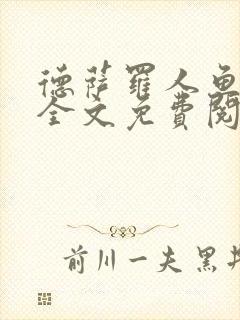 德萨罗人鱼
全文免费阅
前川一夫黑